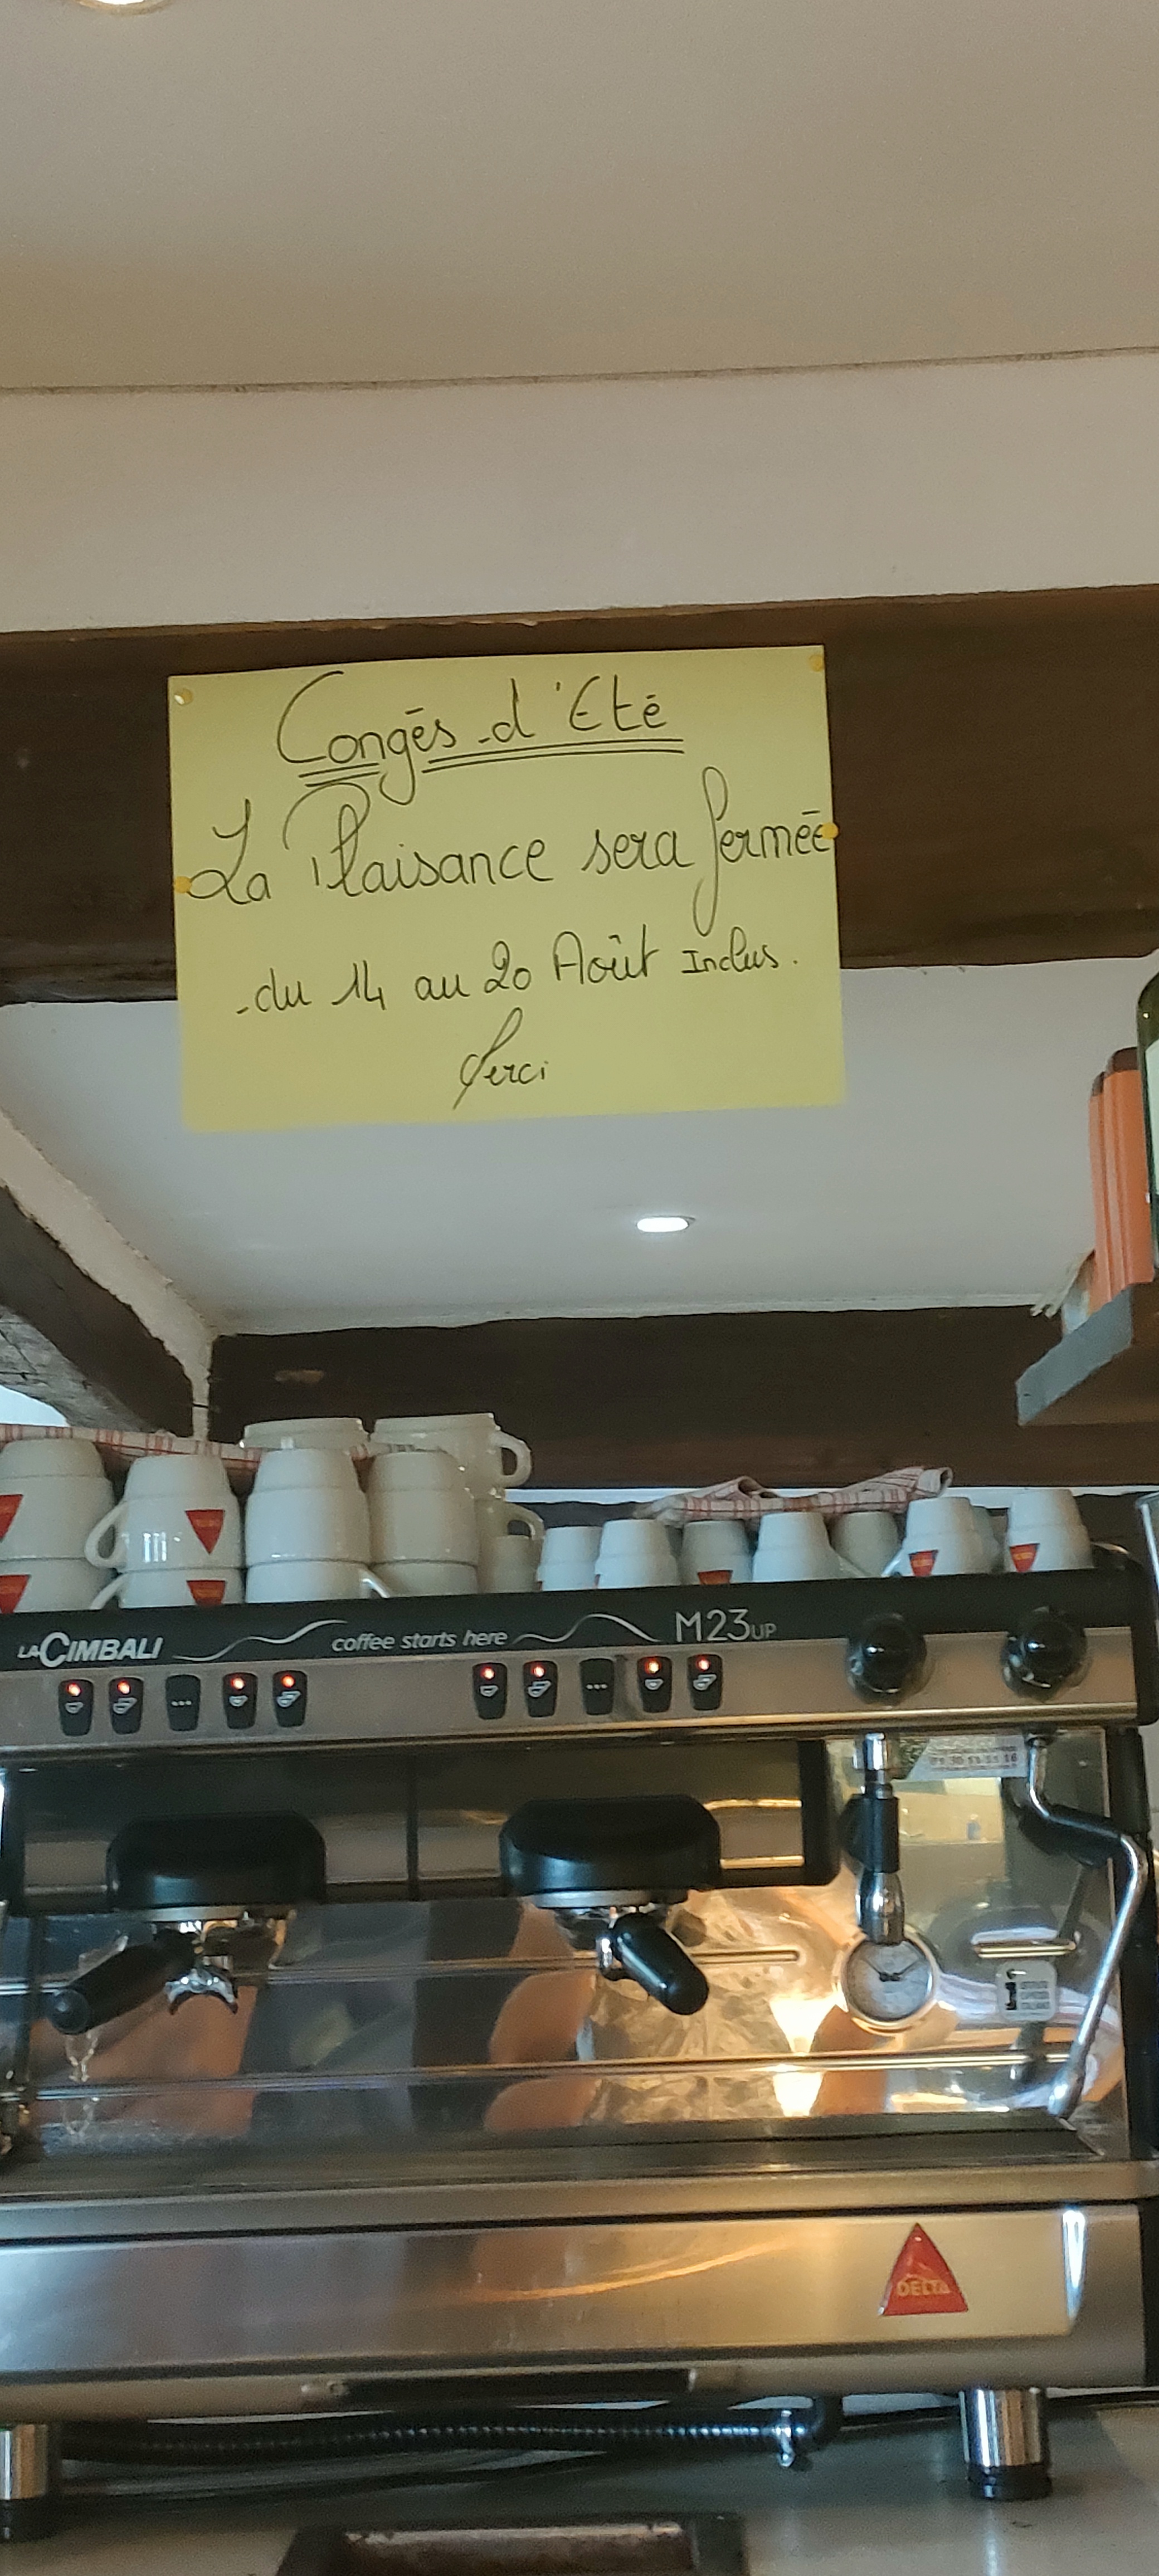 Congés d'Eté
La Plaisance sera fermée
du 14 au 20 Août Inclus.
Merci
LACIMBALI coffee starts here M23UP
DELTA